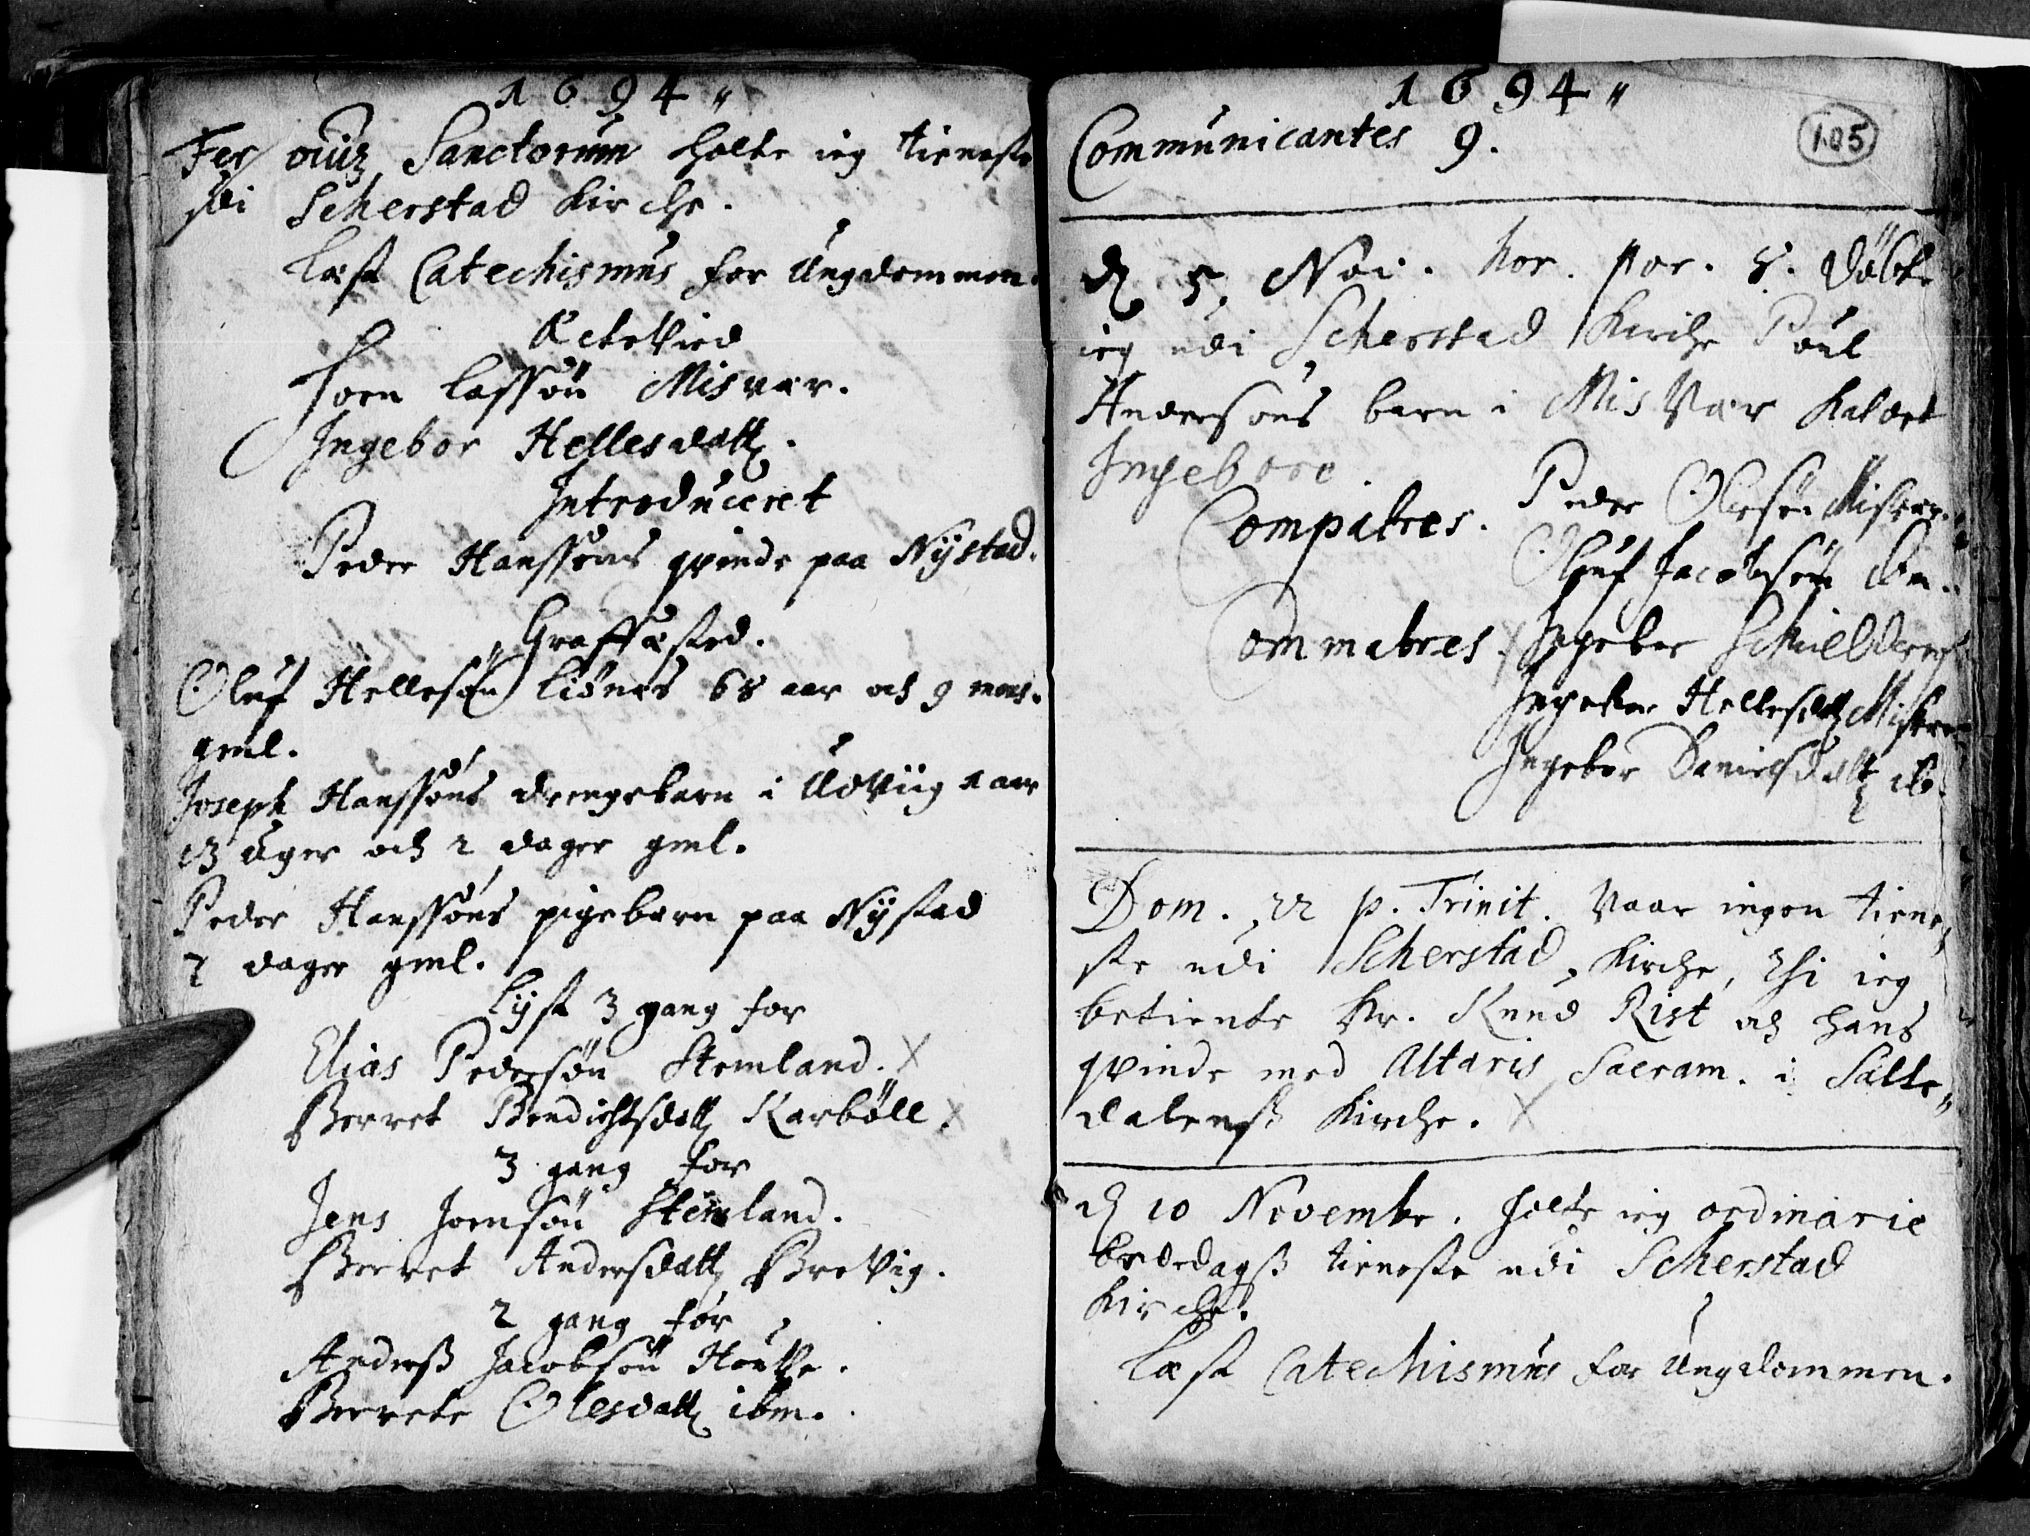 1694 "
Fer oiüz Sanctorum holte ieg tieneste
udi Scherstad Kirche.
Læst Catechismus for Ungdommen.
Ectevied
Joen Lassøn Misvær.
Ingebor Hellesdatt.
Introduceret
Peder Hanssøns qvinde paa Nystad.
Graffæsted.
Oluf Hellesøn Liønes 68 aar och 9 mon.
gml.
Joseph Hanssøns drengebarn i Udviig 1 aar
13 uger och 2 dager gml.
Peder Hanssøns pigebarn paa Nystad
2 dager gml.
Lyst 3 gang for
Elias Pedersøn Stemland. X
Berret Bendichtsdatt Karbøll. X
3 gang for
Jens Joensøn Stemland.
Berret Andersdatt Brevig.
2 gang for
Anderss Jacobsøn
Berrete Olesdatt ibm.
1694 "
Communicantes 9.
105
d 5. Nov. hor. por. 8. Døbte
ieg udi Scherstad Kirche Poul
Andersøns barn i Misvær kaldet
Ingebore.
Compatres. Peder Olesøn Misvær.
Oluf Jacobsøn ibm.
Commatres. Ingebor
Ingebor Hellesdatt Misvær
Ingebor Danielsdatt ib.
Dom. 22 p. Trinit. Vaar ingen tiene"
ste udi Scherstad Kirche, thi ieg
betiente Hr. Knud Rist och hans
qvinde med Altaris Sacram. i Salte"
dalenss Kirche. X
d 10 Novembr. holte ieg ordinarie
bededagss tieneste udi Scherstad
Kirche.
Læst Catechismus for Ungdommen.